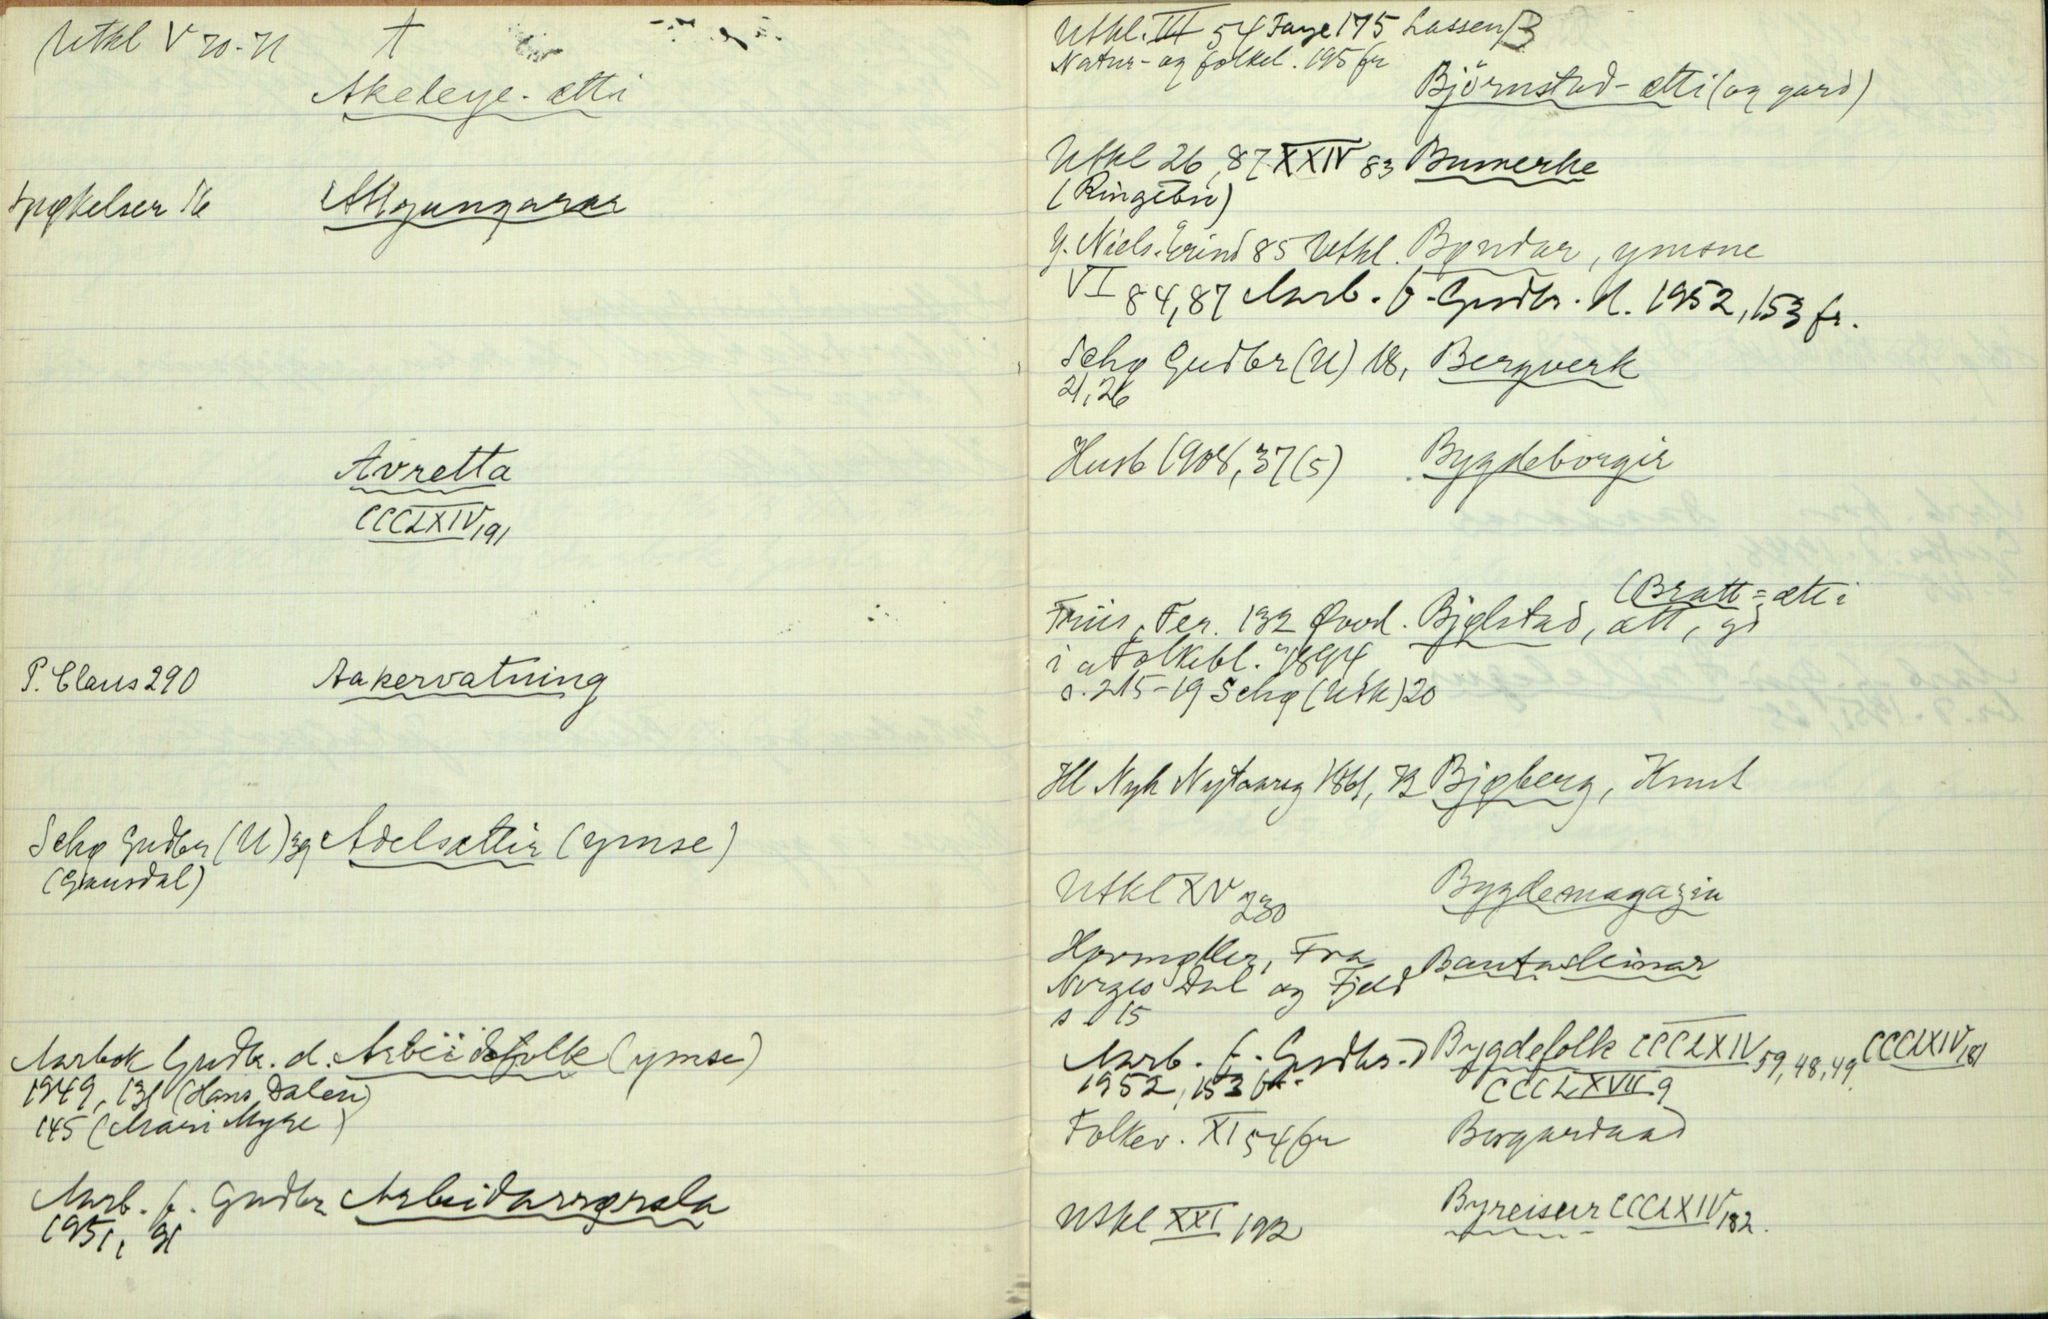 Utkl V 70-71 A
Akeleye-ætti
Spøkelser 16 Attgangarar
Avretta
CCCLXIV 191
P. Claus 290 Aakervatning
Schø Gudbr (U) 39 Adelsættir (ymse)
(Gausdal)
Aarbok Gudbr. d. Arbeidsfolk (ymse)
1949, 131 (Hans Dalen)
145 (Mari Myre)
Aarb. f. Gudbr Arbeidarrørsla
1951, 91
Utkl. III 54 Faye 175 Lassen B
Natur- og folkel. 195 fr
Björnstad-ætti (og gard)
Utkl 26, 87 XXIV 83 Bumerke
(Ringebu)
Y. Niels. Erind 85 Utkl. Bøndar, ymsne
VI 84, 87 Aarb. f. Gudbr. d. 1952, 153 fr.
Schø Gudbr (U) 18, Bergverk
21, 26
Husb 1908, 37 (5) Bygdeborgir
(Bratt = ætti
Friis, Fer. 132 Øverl. Bjølstad, ætt, gd
i "Folkebl." 1894
s. 215-19 Schø (Utk) 20
Hl Nyh Nytaarsg 1861, 73 Bjøberg, Knut
Utkl XV 230 Bygdemagazin
Hormøller, Fra Bautasteinar
Norges Dal og Fjeld
s. 15
Aarb. f. Gudbr. d Bygdefolk CCCLXIV 59, 48, 49. CCCLXIV 181
1952, 153 fr. CCCLXVII 9
Folkev. XI 54 fr Borgardaad
Utkl XXI 192 Byreiseir CCCLXIV 182.